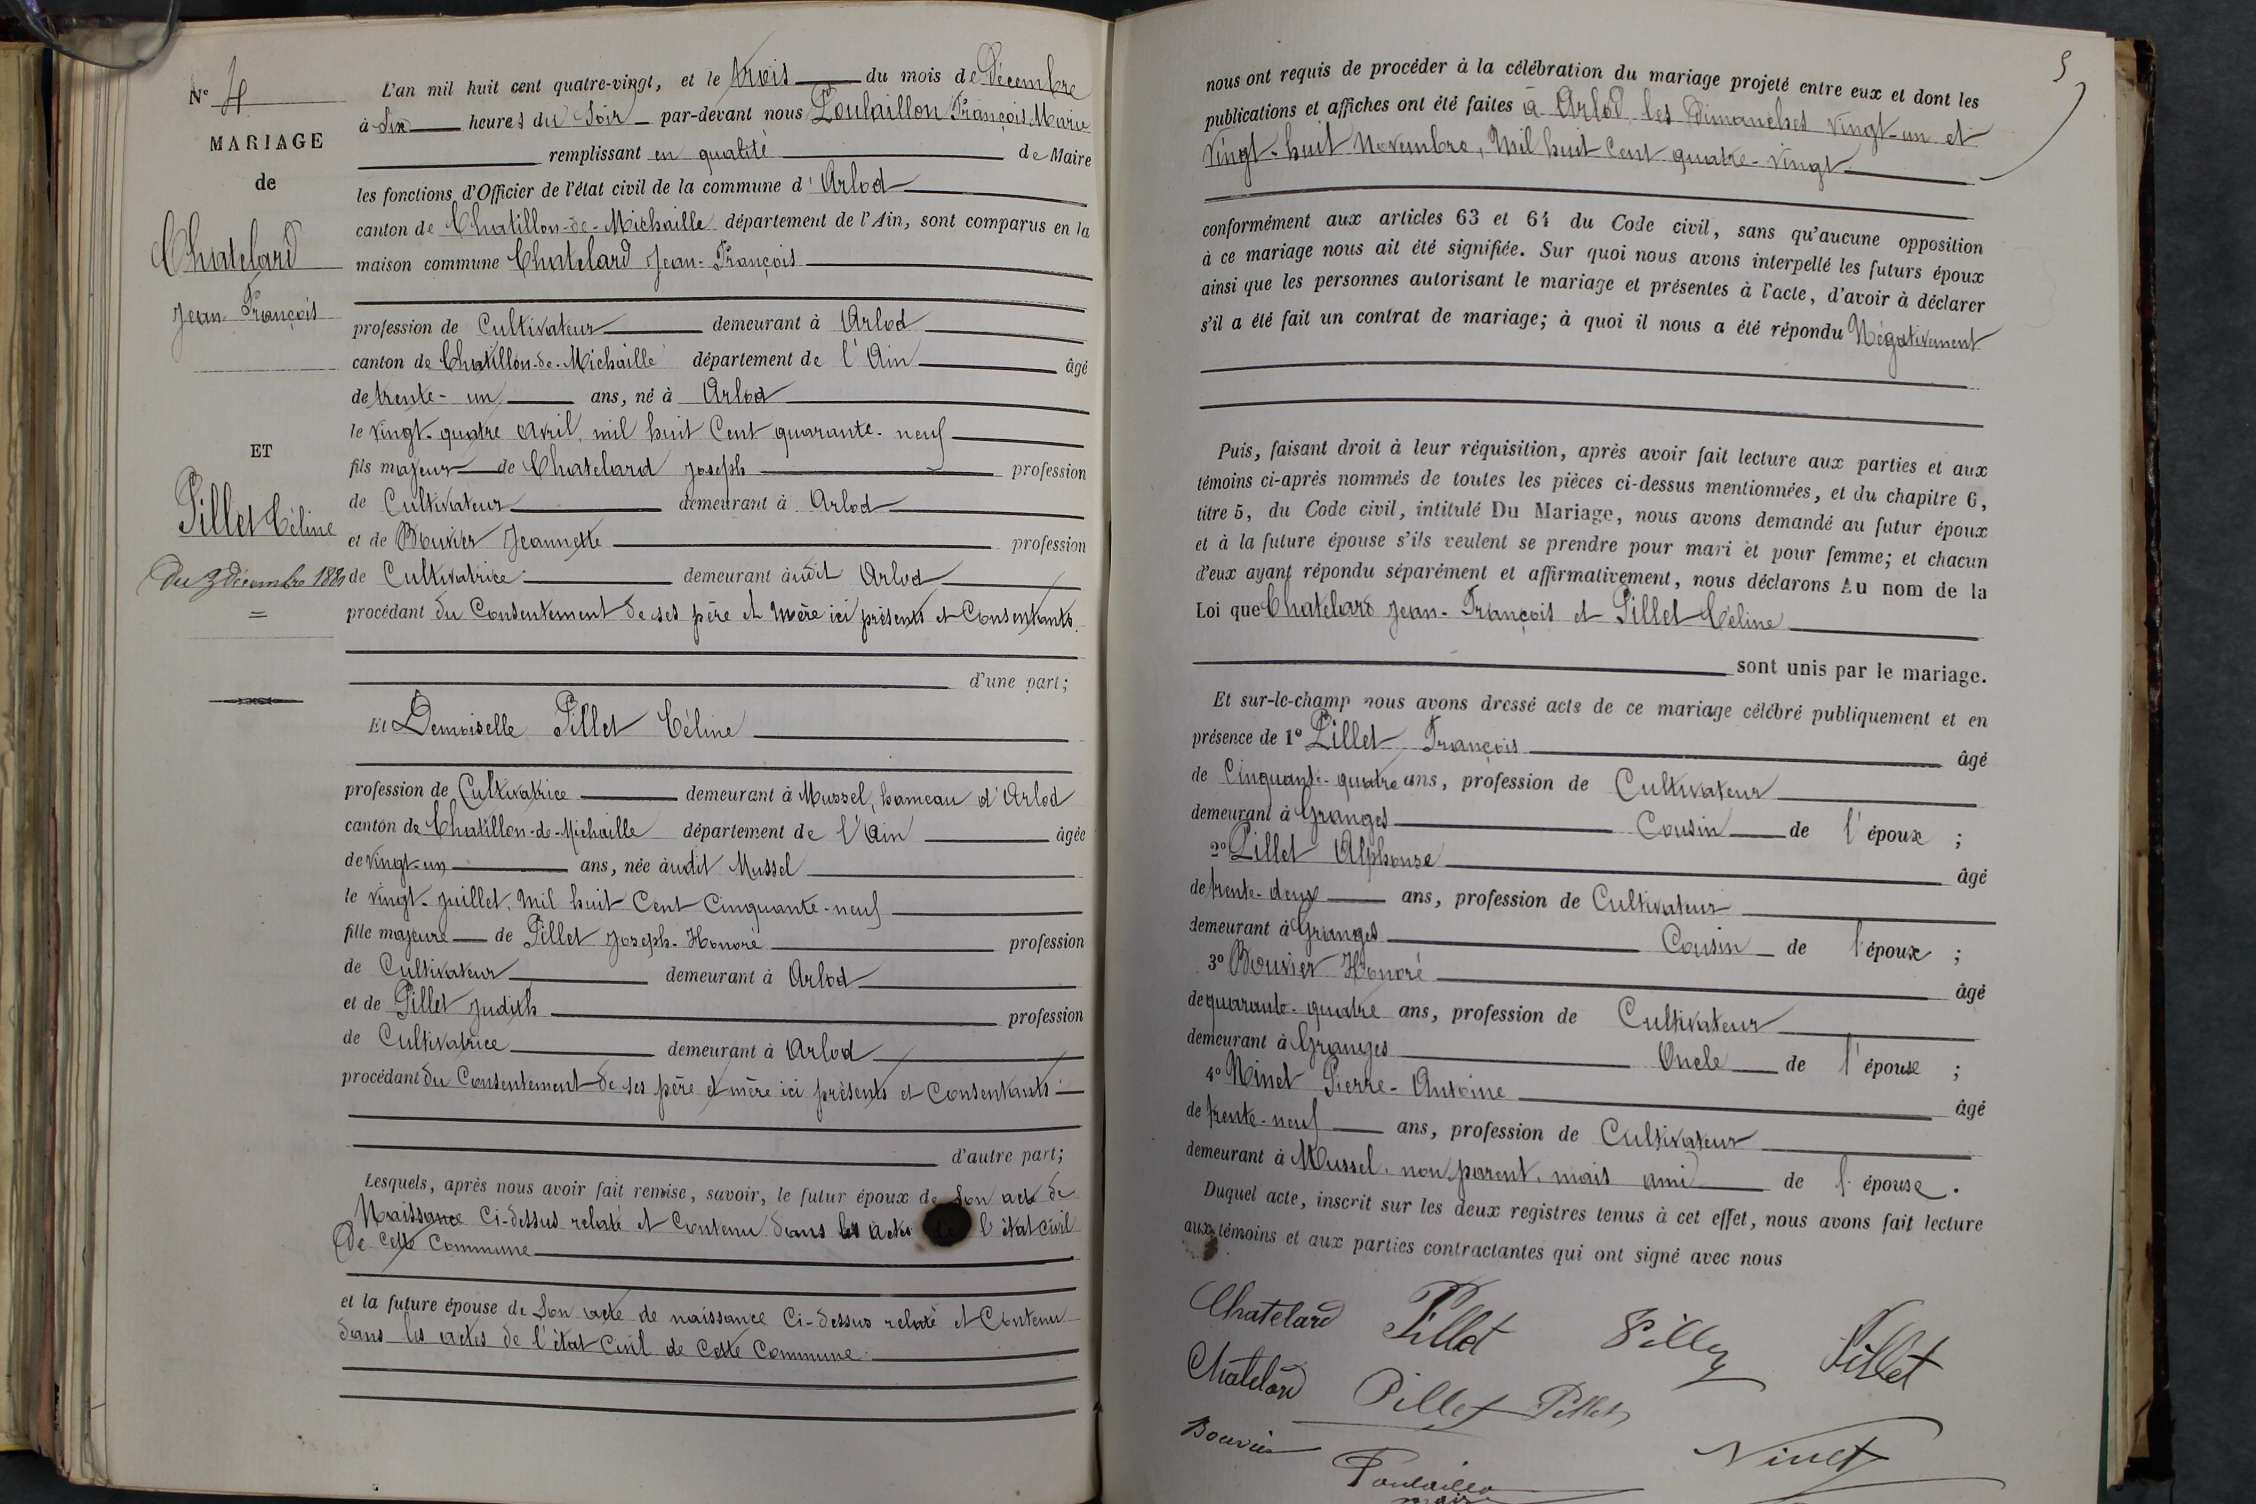 N° 4
MARIAGE
de
Chatelard
Jean-François
ET
Pillet Céline
Du 3 Décembre 1880
L'an mil huit cent quatre-vingt, et le trois du mois de Décembre
à six heures du soir par-devant nous Poulaillon François Marie
remplissant en qualité de Maire
les fonctions d'Officier de l'état civil de la commune d'Arlod
canton de Chatillon-de-Michaille département de l'Ain, sont comparus en la
maison commune Chatelard Jean-François
profession de Cultivateur demeurant à Arlod
canton de Chatillon-de-Michaille département de l'Ain âgé
de trente-un ans, né à Arlod
le vingt-quatre avril, mil huit Cent quarante-neuf
fils majeur de Chatelard Joseph profession
de Cultivateur demeurant à Arlod
et de Bouvier Jeannette profession
de Cultivatrice demeurant àudit Arlod
procédant du Consentement de ses père et mère ici présents et Consentants.
d'une part;
Et Demoiselle Pillet Céline
profession de Cultivatrice demeurant à Mussel, hameau d'Arlod
canton de Chatillon-de-Michaille département de l'Ain âgée
de vingt-un ans, née àudit Mussel
le vingt-juillet, mil huit Cent Cinquante-neuf
fille majeure de Pillet Joseph-Honoré profession
de Cultivateur demeurant à Arlod
et de Pillet Judith profession
de Cultivatrice demeurant à Arlod
procédant du Consentement de ses père et mère ici présents et Consentants
d'autre part;
Lesquels, après nous avoir fait remise, savoir, le futur époux de son acte de
Naissance Ci-dessus relaté et Contenu dans les actes de l'état Civil
de cette Commune
et la future épouse de son acte de naissance Ci-dessus relaté et Contenu
dans les actes de l'état Civil de cette Commune
5
nous ont requis de procéder à la célébration du mariage projeté entre eux et dont les
publications et affiches ont été faites à Arlod les Dimanches vingt-un et
vingt-huit Novembre, Mil huit Cent quatre-vingt
conformément aux articles 63 et 64 du Code civil, sans qu'aucune opposition
à ce mariage nous ait été signifiée. Sur quoi nous avons interpellé les futurs époux
ainsi que les personnes autorisant le mariage et présentes à l'acte, d'avoir à déclarer
s'il a été fait un contrat de mariage; à quoi il nous a été répondu Négativement
Puis, faisant droit à leur réquisition, après avoir fait lecture aux parties et aux
témoins ci-après nommés de toutes les pièces ci-dessus mentionnées, et du chapitre 6,
titre 5, du Code civil, intitulé Du Mariage, nous avons demandé au futur époux
et à la future épouse s'ils veulent se prendre pour mari et pour femme; et chacun
d'eux ayant répondu séparément et affirmativement, nous déclarons Au nom de la
Loi que Chatelard Jean-François et Pillet Céline
sont unis par le mariage.
Et sur-le-champ nous avons dressé acte de ce mariage célébré publiquement et en
présence de 1° Pillet François âgé
de Cinquante-quatre ans, profession de Cultivateur
demeurant à Granges Cousin de l'époux ;
2° Pillet Alphonse âgé
de trente-deux ans, profession de Cultivateur
demeurant à Granges Cousin de l'époux ;
3° Bouvier Honoré âgé
de quarante-quatre ans, profession de Cultivateur
demeurant à Granges Oncle de l'épouse ;
4° Ninet Pierre-Antoine âgé
de trente-neuf ans, profession de Cultivateur
demeurant à Mussel, non parent, mais ami de l'épouse.
Duquel acte, inscrit sur les deux registres tenus à cet effet, nous avons fait lecture
aux témoins et aux parties contractantes qui ont signé avec nous
Chatelard Pillet Pillet
Chatelard Pillet Pillet
Bouvier Ninet
Poulaillon
maire